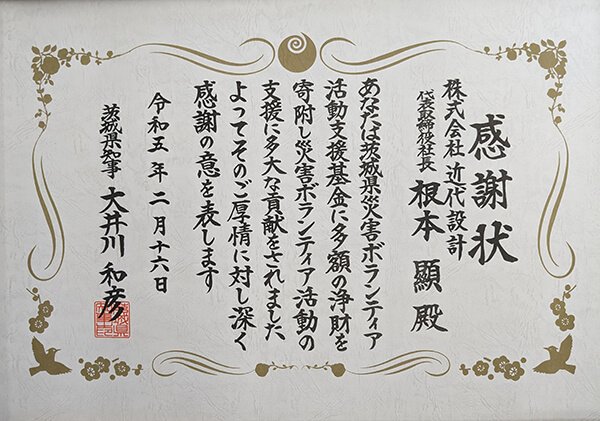 感謝状
株式会社 近代設計
代表取締役社長 根本 顯 殿
あなたは茨城県災害ボランティア
活動支援基金に多額の浄財を
寄附し災害ボランティア活動の
支援に多大な貢献をされました
よってそのご厚情に対し深く
感謝の意を表します
令和五年二月十六日
茨城県知事 大井川 和彦